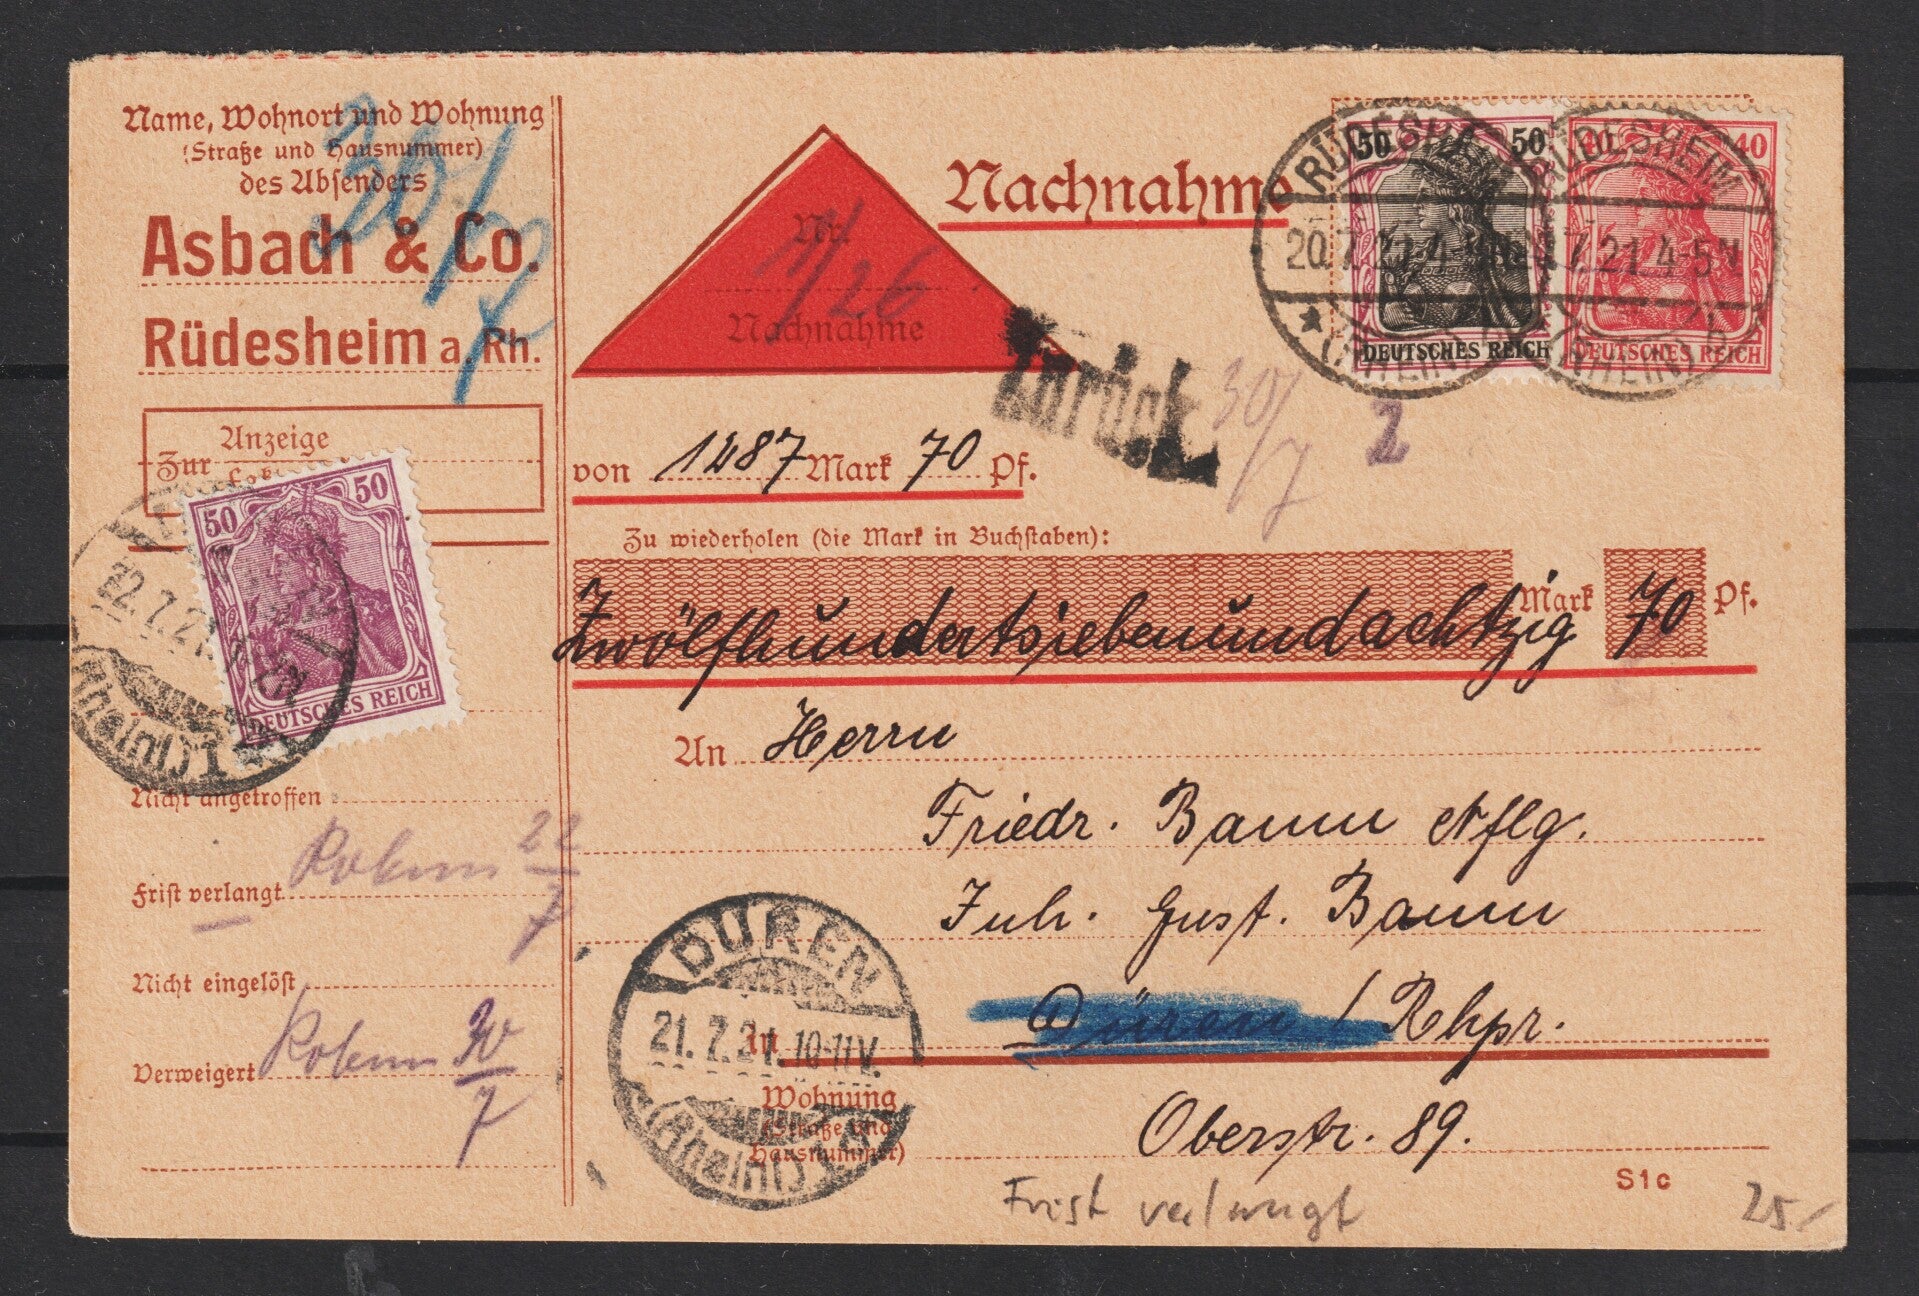 Name, Wohnort und Wohnung
(Straße und Hausnummer)
des Absenders
Asbach & Co.
Rüdesheim a. Rh.
30/7
Zur Anzeige
50 50
DEUTSCHES REICH
22.7.21
(Rheinl)
Nicht angetroffen
Frist verlangt
22/7
Nicht eingelöst
Verweigert
30/7
Nr.
11/26
Nachnahme
Nachnahme
50 50
DEUTSCHES REICH
40 40
DEUTSCHES REICH
RÜDESHEIM
20.7.21.4-5N
(RHEIN)
RÜDESHEIM
20.7.21.4-5N
(RHEIN) b
Zurück
30/7
2
von 1287 Mark 70 Pf.
Zu wiederholen (die Mark in Buchstaben):
Zwölfhundertsiebenundachtzig Mark 70 Pf.
An Herrn
Friedr. Baum Nflg.
Inh. Gust. Baum
in Düren / Rhpr.
DÜREN
21.7.21.10-11V.
(Rheinl)
Wohnung
(Straße und
Hausnummer)
Oberstr. 89.
S1c
Frist verlangt
25.-